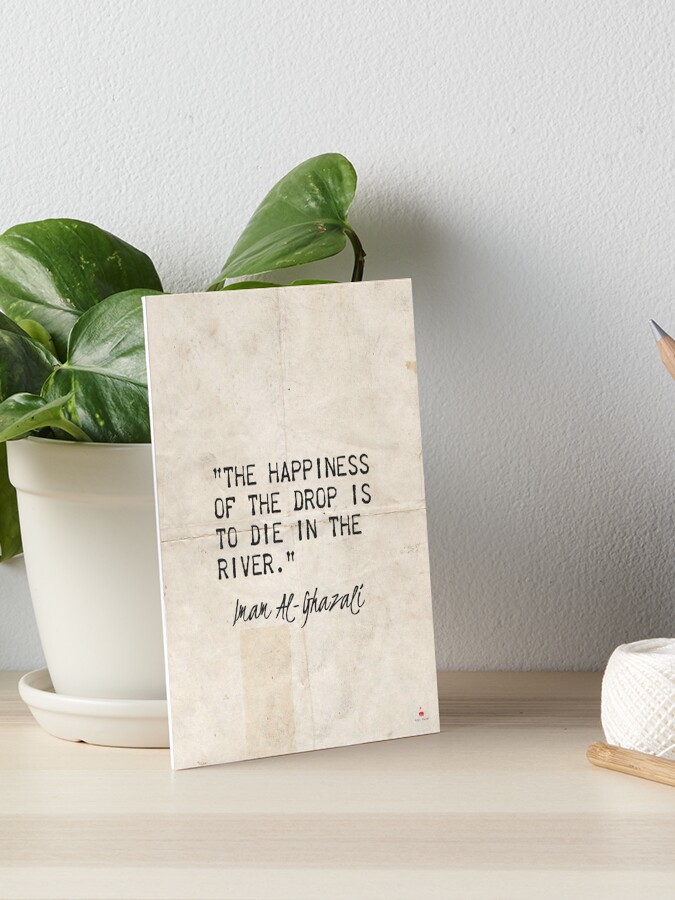 "THE HAPPINESS
OF THE DROP IS
TO DIE IN THE
RIVER."
Imam Al-Ghazali